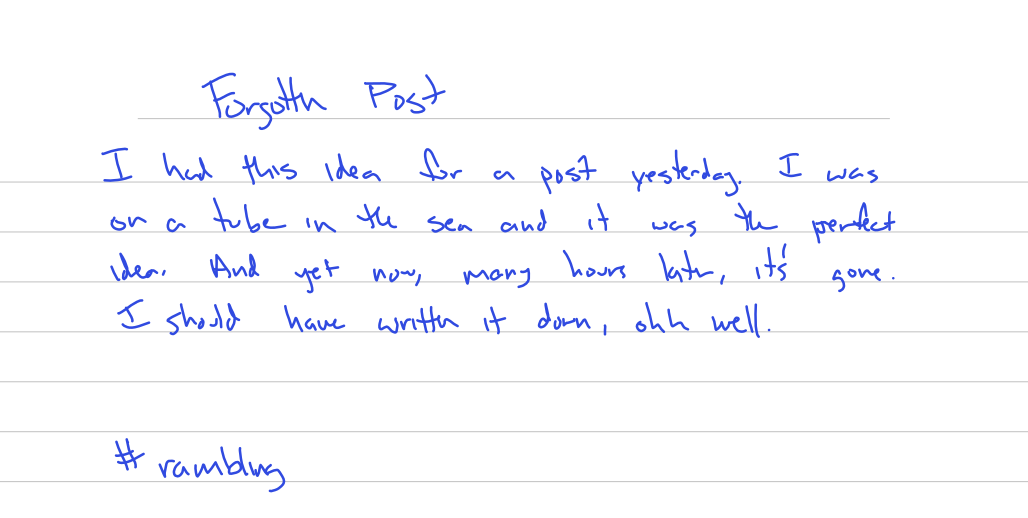 Forgotten Post
I had this idea for a post yesterday. I was
on a tube in the sea and it was the perfect
idea. And yet now, many hours later, it's gone.
I should have written it down, ohh well.
# rambling